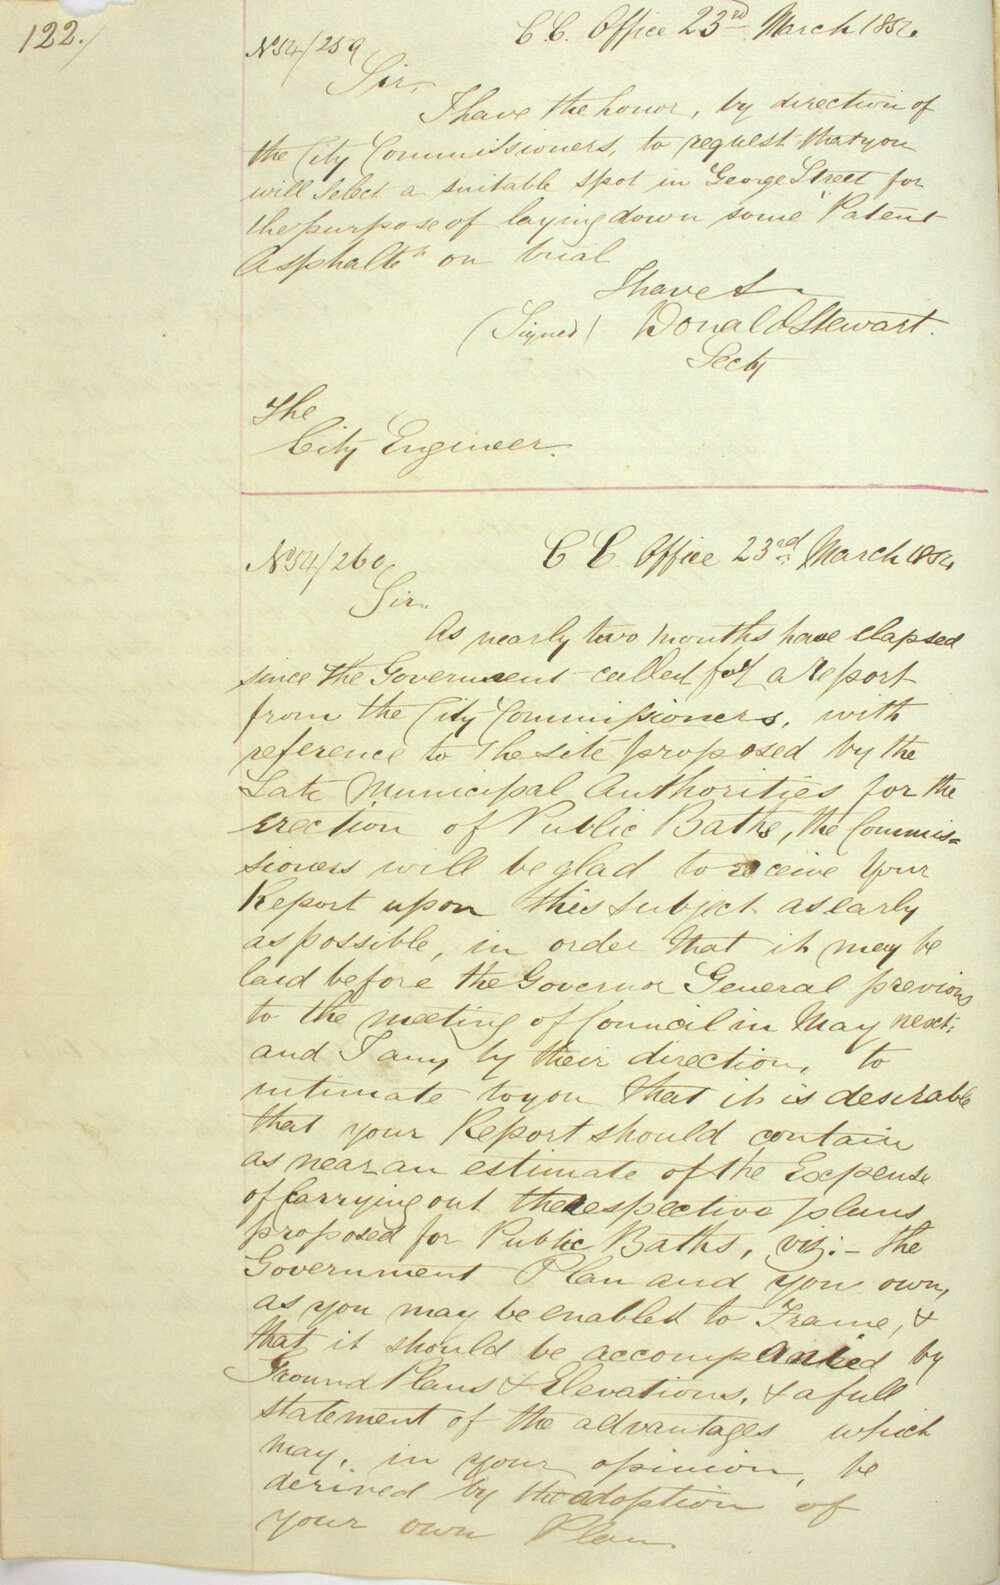 122.
C.C. Office 23rd March 1854
No 54/259
Sir,
I have the honor, by direction of
the City Commissioners, to request that you
will select a suitable spot in George Street for
the purpose of laying down some "Patent
Asphalte" on trial
I have &
(Signed) Donald Stewart.
Secty
The
City Engineer.
No 54/260
C C. Office 23rd March 1854
Sir,
As nearly two months have elapsed
since the Government called for a report
from the City Commissioners, with
reference to the site proposed by the
Late Municipal Authorities for the
Erection of Public Baths, the Commis=
sioners will be glad to receive your
Report upon this subject as early
as possible, in order that it may be
laid before the Governor General previous
to the meeting of Council in May next,
and I am, by their direction, to
intimate to you that it is desirable
that your Report should contain
as near an estimate of the Expense
of Carrying out the respective plans
proposed for Public Baths, viz:- the
Government Plan and your own,
as you may be enabled to Frame, &
that it should be accompanied by
Ground Plans & Elevations, & a full
statement of the advantages which
may, in your opinion, be
derived by the adoption of
your own Plan.